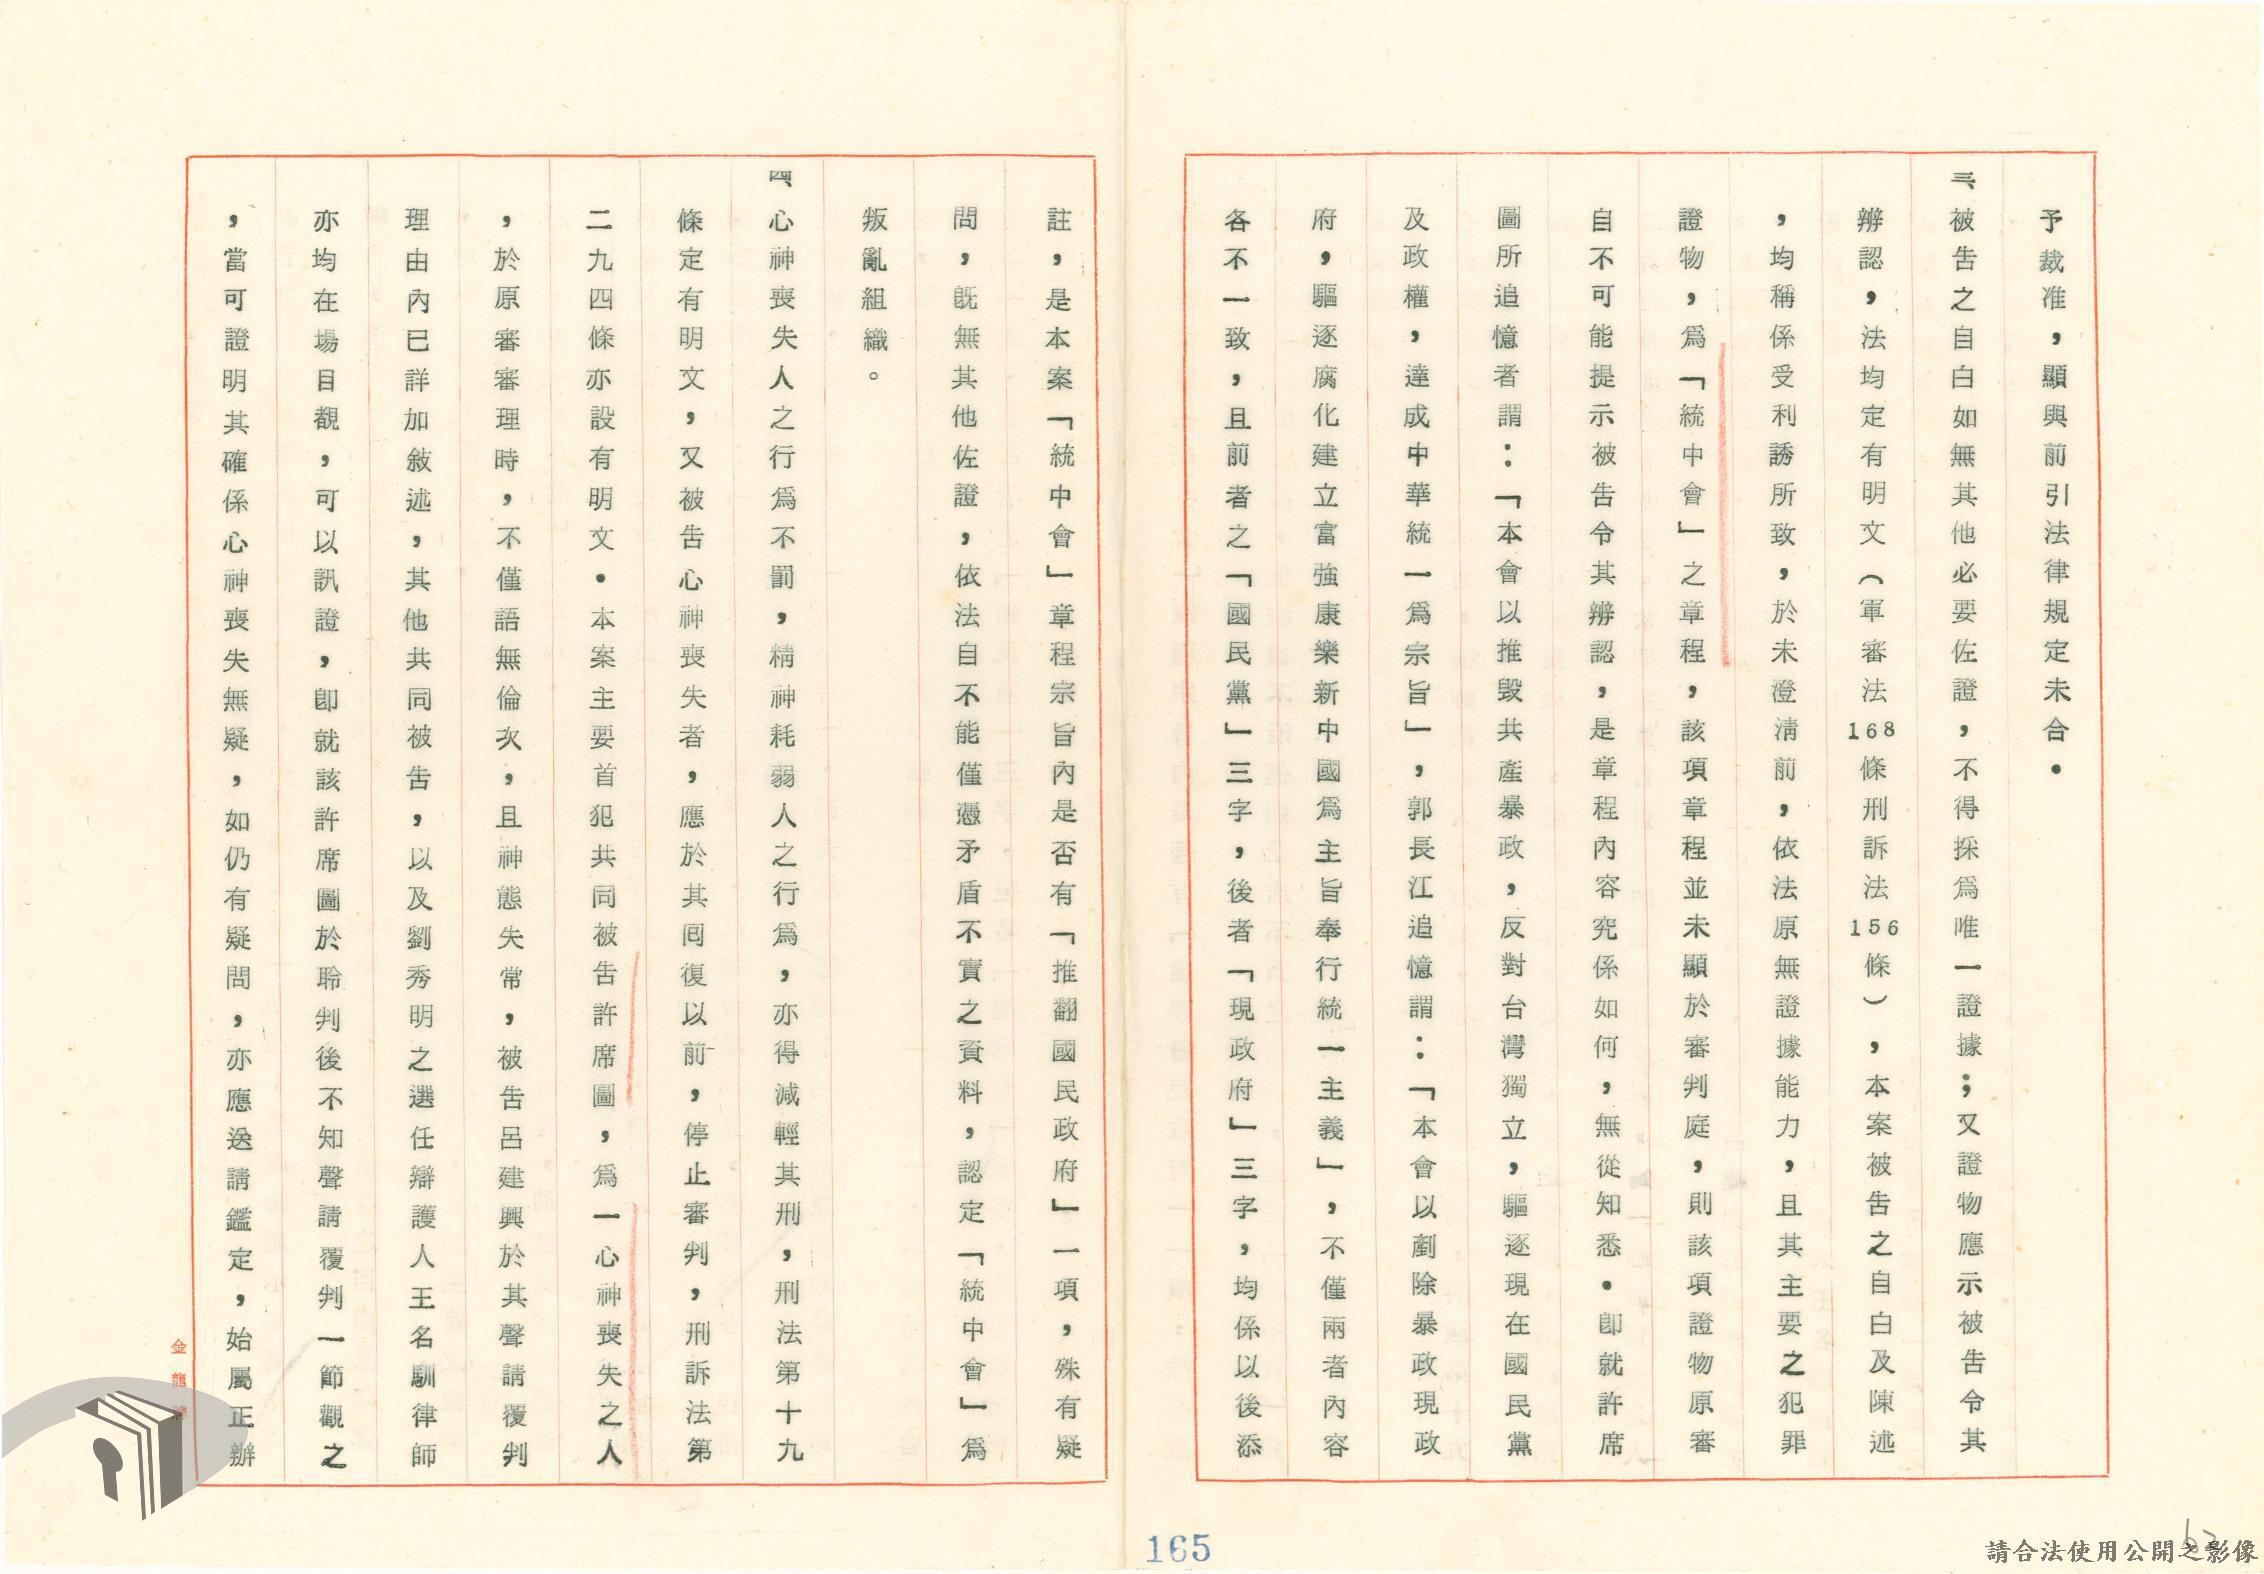 予裁准，顯與前引法律規定未合．
三、被告之自白如無其他必要佐證，不得採爲唯一證據；又證物應示被告令其
辨認，法均定有明文（軍審法168條刑訴法156條），本案被告之自白及陳述
，均稱係受利誘所致，於未澄清前，依法原無證據能力，且其主要之犯罪
證物，爲「統中會」之章程，該項章程並未顯於審判庭，則該項證物原審
自不可能提示被告令其辨認，是章程內容究係如何，無從知悉．卽就許席
圖所追憶者謂：「本會以推毀共產暴政，反對台灣獨立，驅逐現在國民黨
及政權，達成中華統一爲宗旨」，郭長江追憶謂：「本會以剷除暴政現政
府，驅逐腐化建立富強康樂新中國爲主旨奉行統一主義」，不僅兩者內容
各不一致，且前者之「國民黨」三字，後者「現政府」三字，均係以後添
註，是本案「統中會」章程宗旨內是否有「推翻國民政府」一項，殊有疑
問，既無其他佐證，依法自不能僅憑矛盾不實之資料，認定「統中會」爲
叛亂組織。
四、心神喪失人之行爲不罰，精神耗弱人之行爲，亦得減輕其刑，刑法第十九
條定有明文，又被告心神喪失者，應於其囘復以前，停止審判，刑訴法第
二九四條亦設有明文．本案主要首犯共同被告許席圖，爲一心神喪失之人
，於原審審理時，不僅語無倫次，且神態失常，被告呂建興於其聲請覆判
理由內已詳加敘述，其他共同被告，以及劉秀明之選任辯護人王名馴律師
亦均在場目覩，可以訊證，卽就該許席圖於聆判後不知聲請覆判一節觀之
，當可證明其確係心神喪失無疑，如仍有疑問，亦應送請鑑定，始屬正辦
金龍牌
165
62
請合法使用公開之影像